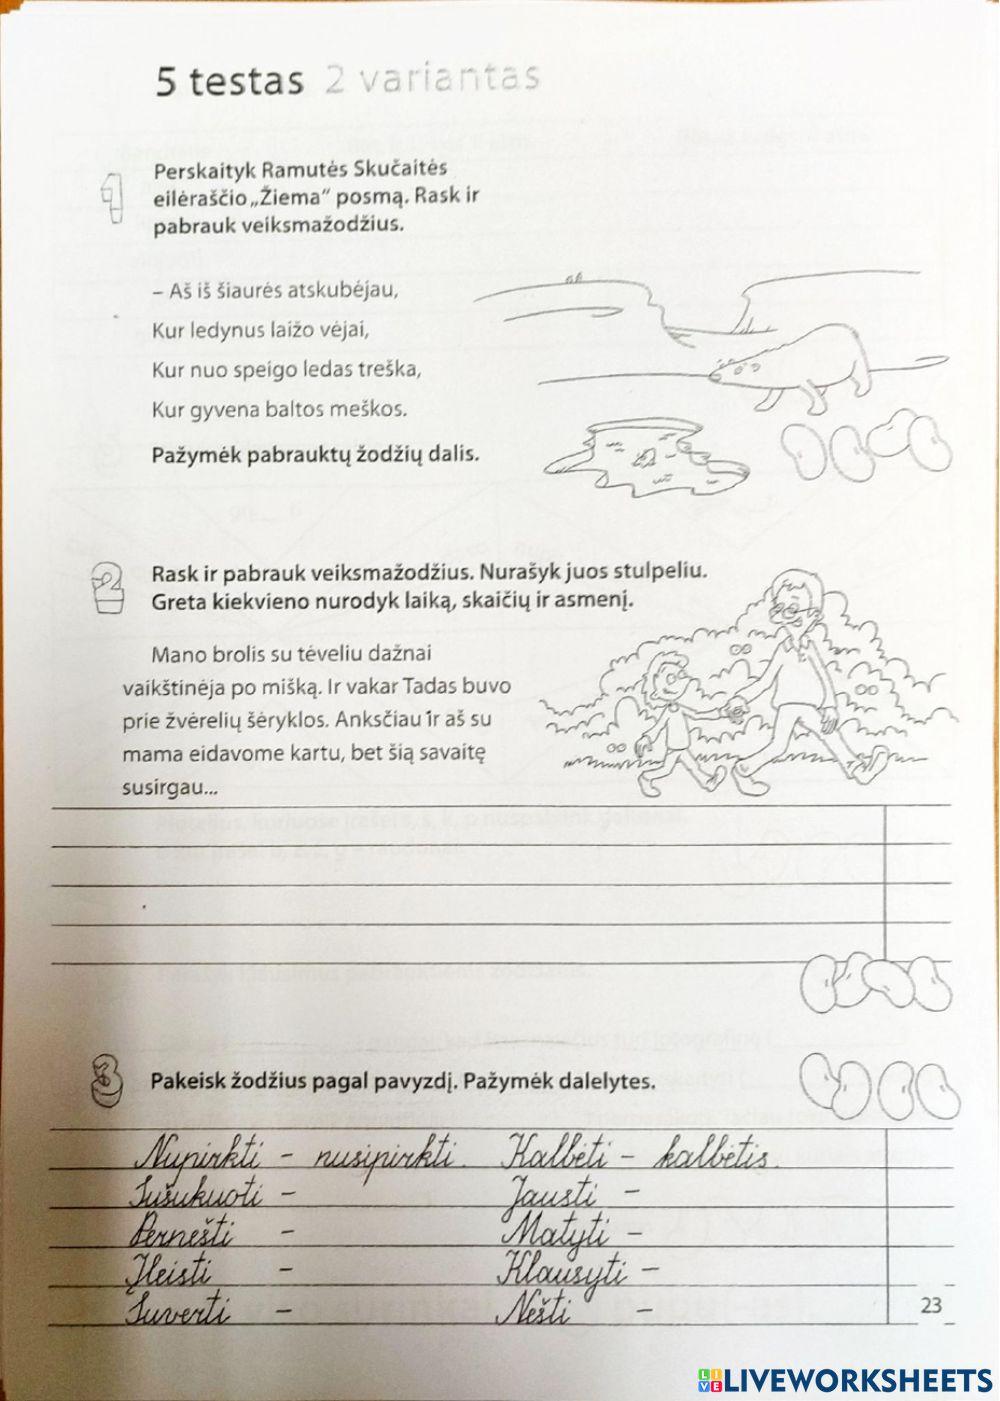 5 testas 2 variantas
1
Perskaityk Ramutės Skučaitės
eilėraščio „Žiema“ posmą. Rask ir
pabrauk veiksmažodžius.
– Aš iš šiaurės atskubėjau,
Kur ledynus laižo vėjai,
Kur nuo speigo ledas treška,
Kur gyvena baltos meškos.
Pažymėk pabrauktų žodžių dalis.
2
Rask ir pabrauk veiksmažodžius. Nurašyk juos stulpeliu.
Greta kiekvieno nurodyk laiką, skaičių ir asmenį.
Mano brolis su tėveliu dažnai
vaikštinėja po mišką. Ir vakar Tadas buvo
prie žvėrelių šėryklos. Anksčiau ir aš su
mama eidavome kartu, bet šią savaitę
susirgau...
3
Pakeisk žodžius pagal pavyzdį. Pažymėk dalelytes.
Nupirkti – nusipirkti. Kalbėti – kalbėtis.
Sušukuoti – Jausti –
Pernešti – Matyti –
Įleisti – Klausyti –
Suverti – Nešti –
23
LIVEWORKSHEETS